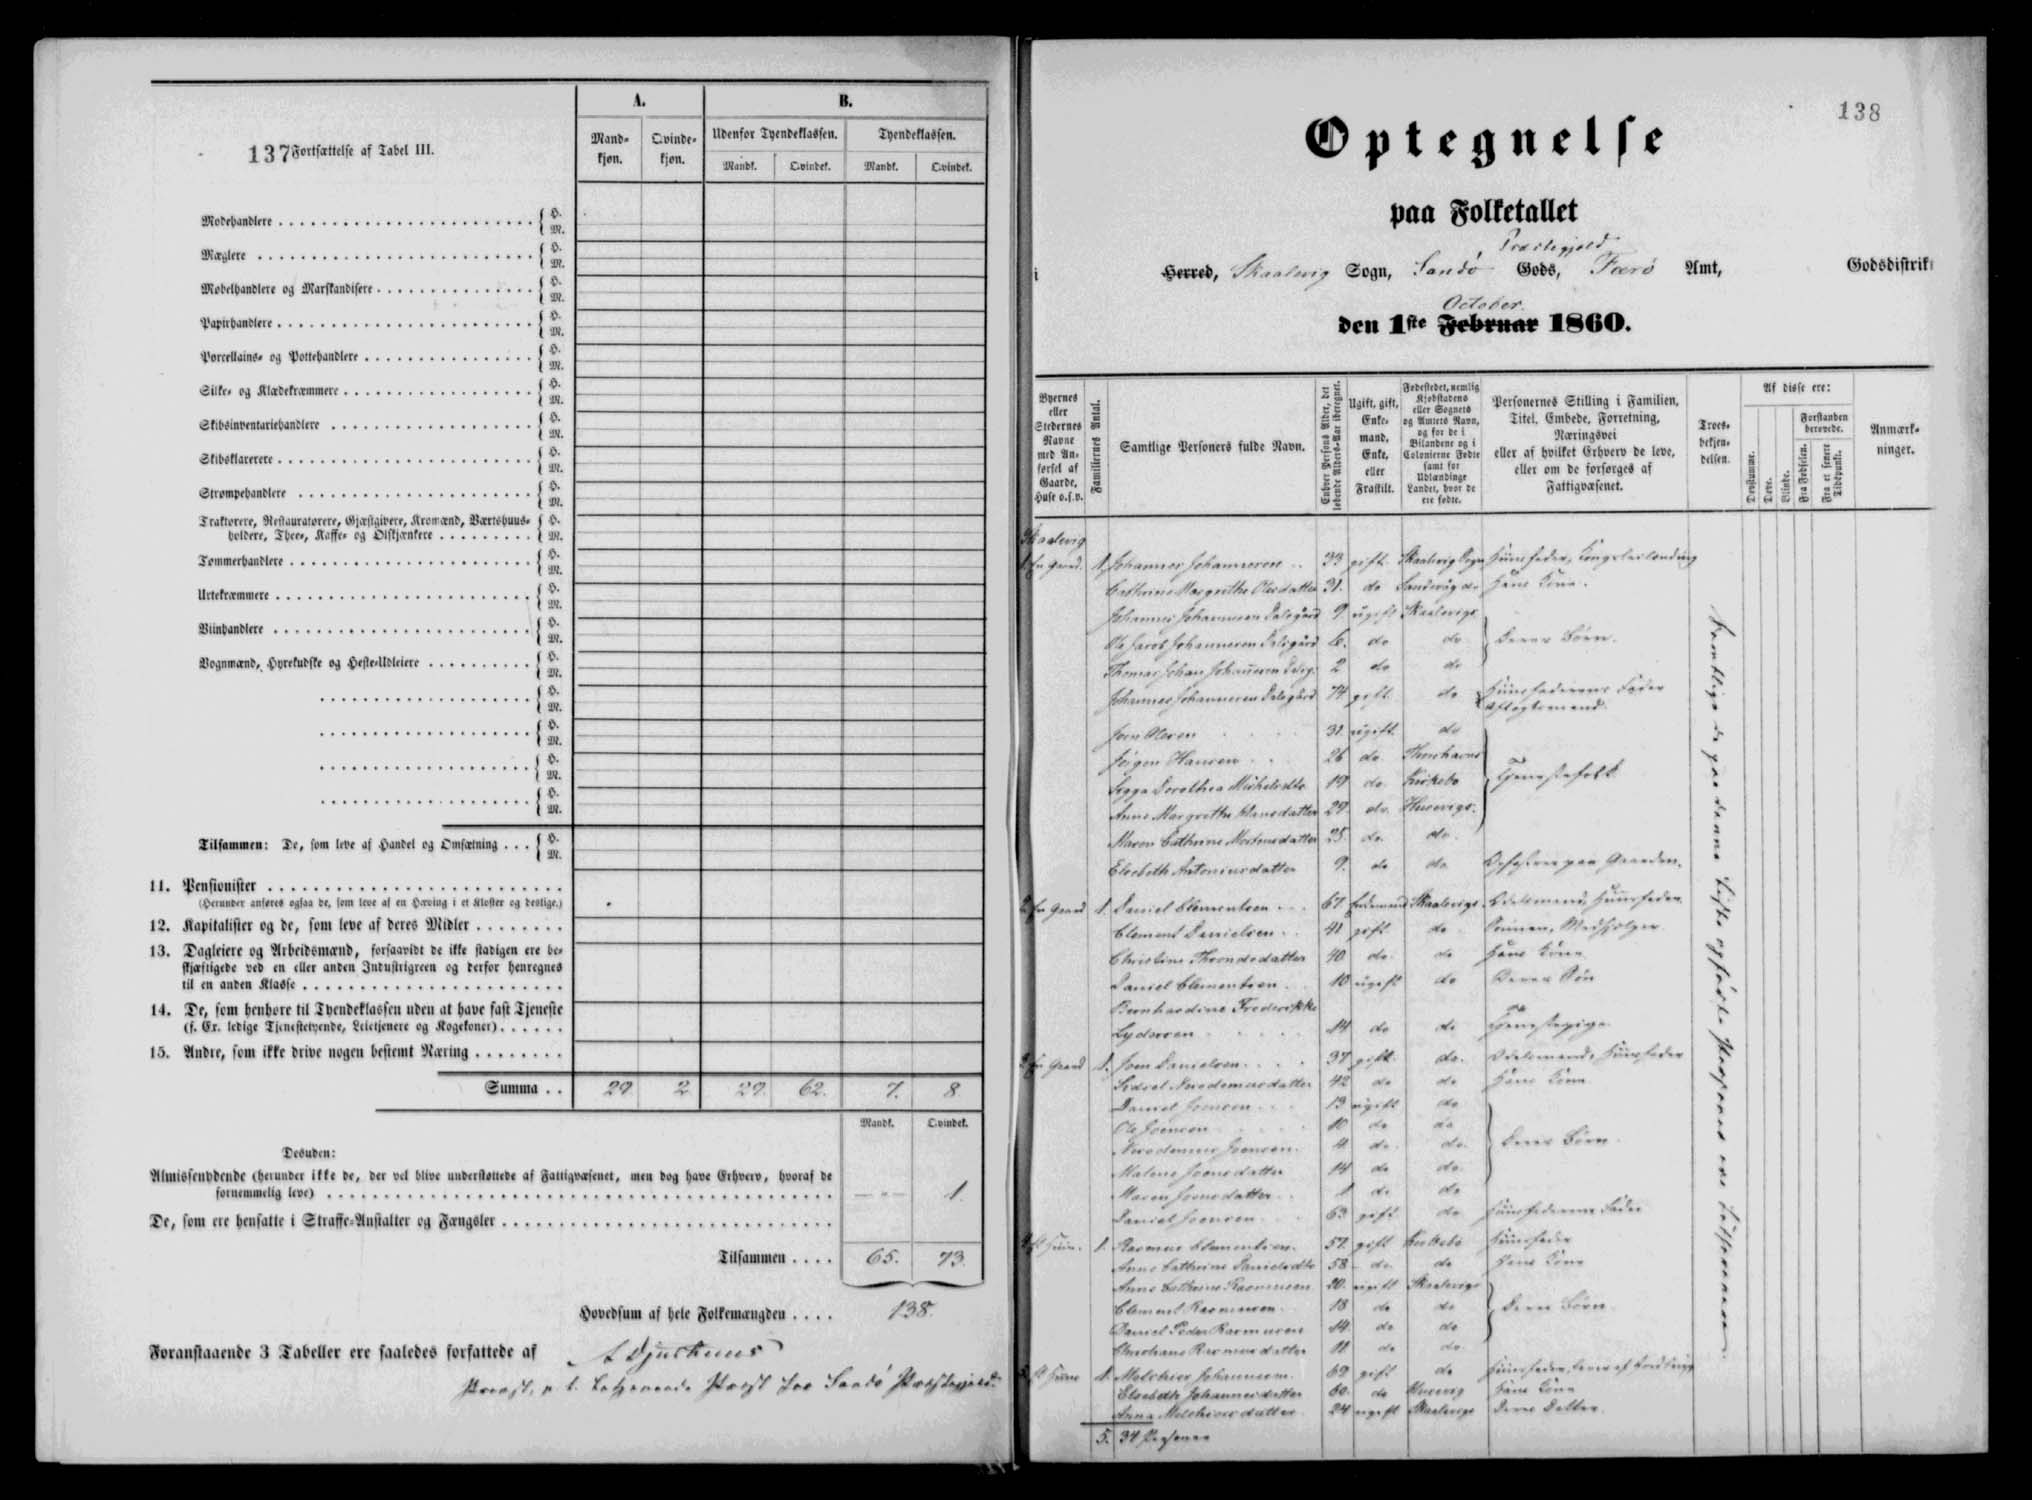 137 Fortsættelse af Tabel III.
A.
B.
Mandkjøn.
Qvindekjøn.
Udenfor Tyendeklassen.
Tyendeklassen.
Mandk.
Qvindek.
Mandk.
Qvindek.
Modehandlere { H. M.
Mæglere { H. M.
Møbelhandlere og Marskandisere { H. M.
Papirhandlere { H. M.
Porcellains- og Pottehandlere { H. M.
Silke- og Klædekræmmere { H. M.
Skibsinventariehandlere { H. M.
Skibsklarerere { H. M.
Strømpehandlere { H. M.
Traktører, Restauratører, Gjæstgivere, Kromænd, Værtshuus-
holdere, Thee-, Kaffe- og Ølskjænkere { H. M.
Tømmerhandlere { H. M.
Urtekræmmere { H. M.
Viinhandlere { H. M.
Vognmænd, Hyrekudske og Heste-Udleiere { H. M.
{ H. M.
{ H. M.
{ H. M.
{ H. M.
Tilsammen: De, som leve af Handel og Omsætning . . . { H. M.
11. Pensionister
(Herunder anføres ogsaa de, som leve af en Hæving i et Kloster og deslige.)
12. Kapitalister og de, som leve af deres Midler
13. Dagleiere og Arbeidsmænd, forsaavidt de ikke stadigen ere be-
skjæftigede ved en eller anden Industrigreen og derfor henregnes
til en anden Klasse
14. De, som henhøre til Tyendeklassen uden at have fast Tjeneste
(f. Ex. ledige Tjenestetyende, Leietjenere og Kogekoner)
15. Andre, som ikke drive nogen bestemt Næring
Summa . . 29 2 29. 62. 7. 8
Mandk. Qvindek.
Desuden:
Almissenydende (herunder ikke de, der vel blive understøttede af Fattigvæsenet, men dog have Erhverv, hvoraf de
fornemmelig leve) — " — 1.
De, som ere hensatte i Straffe-Anstalter og Fængsler
Tilsammen . . . . 65. 73.
Hovedsum af hele Folkemængden . . . . 138.
Foranstaaende 3 Tabeller ere saaledes forfattede af
Præst for Sandø Præstegjeld
138
Optegnelse
paa Folketallet
Præstegjeld
i Herred, Skaalevig Sogn, Sandø Gods, Færø Amt, Godsdistrikt
October.
den 1ste Februar 1860.
Byernes eller Stedernes Navne med Anførsel af Gaarde, Huse o.s.v.
Familiernes Antal.
Samtlige Personers fulde Navn.
Enhver Persons Alder, det løbende Alders-Aar iberegnet.
Ugift, gift, Enkemand, Enke, eller Fraskilt.
Fødestedet, nemlig Kjøbstadens eller Sognets og Amtets Navn, og for de i Bilandene og i Colonierne Fødte samt for Udlændinge Landet, hvor de ere fødte.
Personernes Stilling i Familien, Titel, Embede, Forretning, Næringsvei eller af hvilket Erhverv de leve, eller om de forsørges af Fattigvæsenet.
Troesbekjendelsen.
Af disse ere:
Døvstumme.
Døve.
Blinde.
Forstanden berøvede.
Fra Fødselen.
Fra et senere Tidspunkt.
Anmærkninger.
Skaalevig
1 En Gaard. 1. Johannes Johannesen 33 gift Skaalevig Sogn Huusfader, Kongsleilænding
Cathrine Margrethe Olesdatter 31. do Sandevåg do Hans Kone.
Johannes Johannesen Dalsgård 9 ugift Skaalevigs
Ole Jacob Johannesen Dalsgård 6. do do } Deres Børn.
Thomas Johan Johannesen Dalsg. 2 do do
Johannes Johannesen Dalsgård 74 gift do Huusfaderens Fader
Aftægtsmand.
Joen Olesen 31. ugift do
Jørgen Hansen 26 do. Thorshavns
Sigga Dorothea Michelsdtr 19 do Kirkebø } Tjenestefolk
Anne Margrethe Hansdatter 29. do. Husevigs.
Maren Cathrine Mortensdatter 25. do. do.
Elsebeth Antoniusdatter 9. do do Opfostres paa Gaarden.
2. En Gaard 1. Daniel Clementsen 67. Enkemand Skaalevigs. Odelsmand, Huusfader.
Clement Danielsen 41 gift do Sønnen, Medhjælper
Christine Throndsdatter 40 do. do Hans Kone
Daniel Clementsen 10 ugift do Deres Søn
Bernhardine Frederikke
Lydersen 14 do do Tjenestepige.
3 En Gaard 1. Joen Danielsen 37 gift do. Odelsmand, Huusfader
Sidsel Nicodemusdatter 42 do do Hans Kone
Daniel Joensen 13 ugift do
Ole Joensen 10 do do
Nicodemus Joensen. 4 do. do. } Deres Børn.
Malene Joensdatter 14 do do.
Maren Joensdatter 1 do do
Daniel Joensen 63 gift do Huusfaderens Fader
4 Et Huus. 1. Rasmus Clementsen. 57. gift Kirkebø Huusfader
Anne Cathrine Danielsdtr 58 do. do Hans Kone
Anne Cathrine Rasmussen 20. ugift Skaalevigs
Clement Rasmussen. 18 do do } Deres Børn.
Daniel Peder Rasmussen 14. do do
Christiane Rasmusdatter 11 do do.
5 Et Huus 1. Melchior Johannesen. 69 gift do Huusfader, lever af Jordbrug
Elsebeth Johannesdatter 60. do Husevig Hans Kone
Anna Melchiorsdatter 24 ugift Skaalevigs Deres Datter.
5. 34 Personer
Samtlige de paa denne Liste opførte Personer ere Lutheranere.